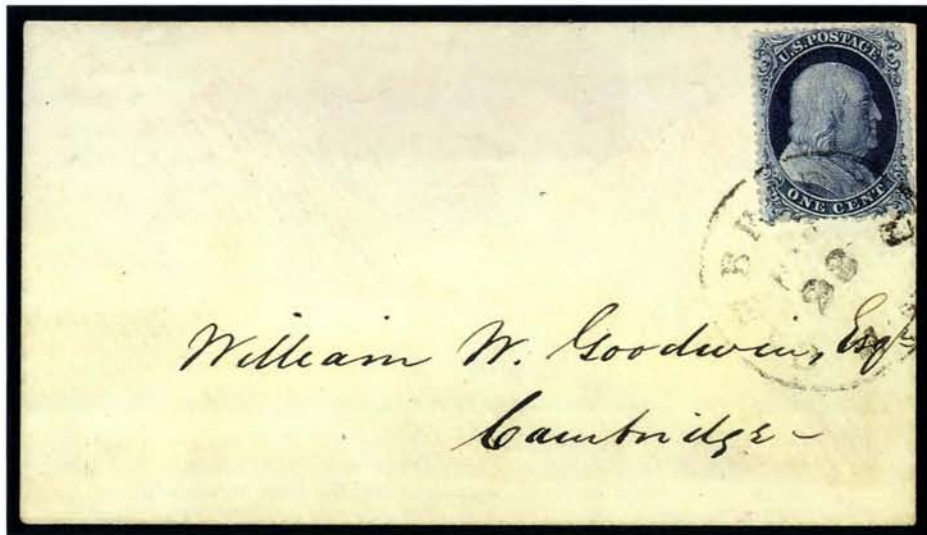 U.S. POSTAGE
ONE CENT
28
William W. Goodwin, Esqr,
Cambridge -